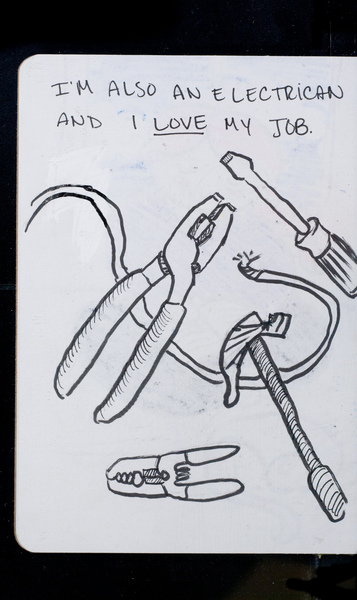 I'M ALSO AN ELECTRICAN
AND I LOVE MY JOB.